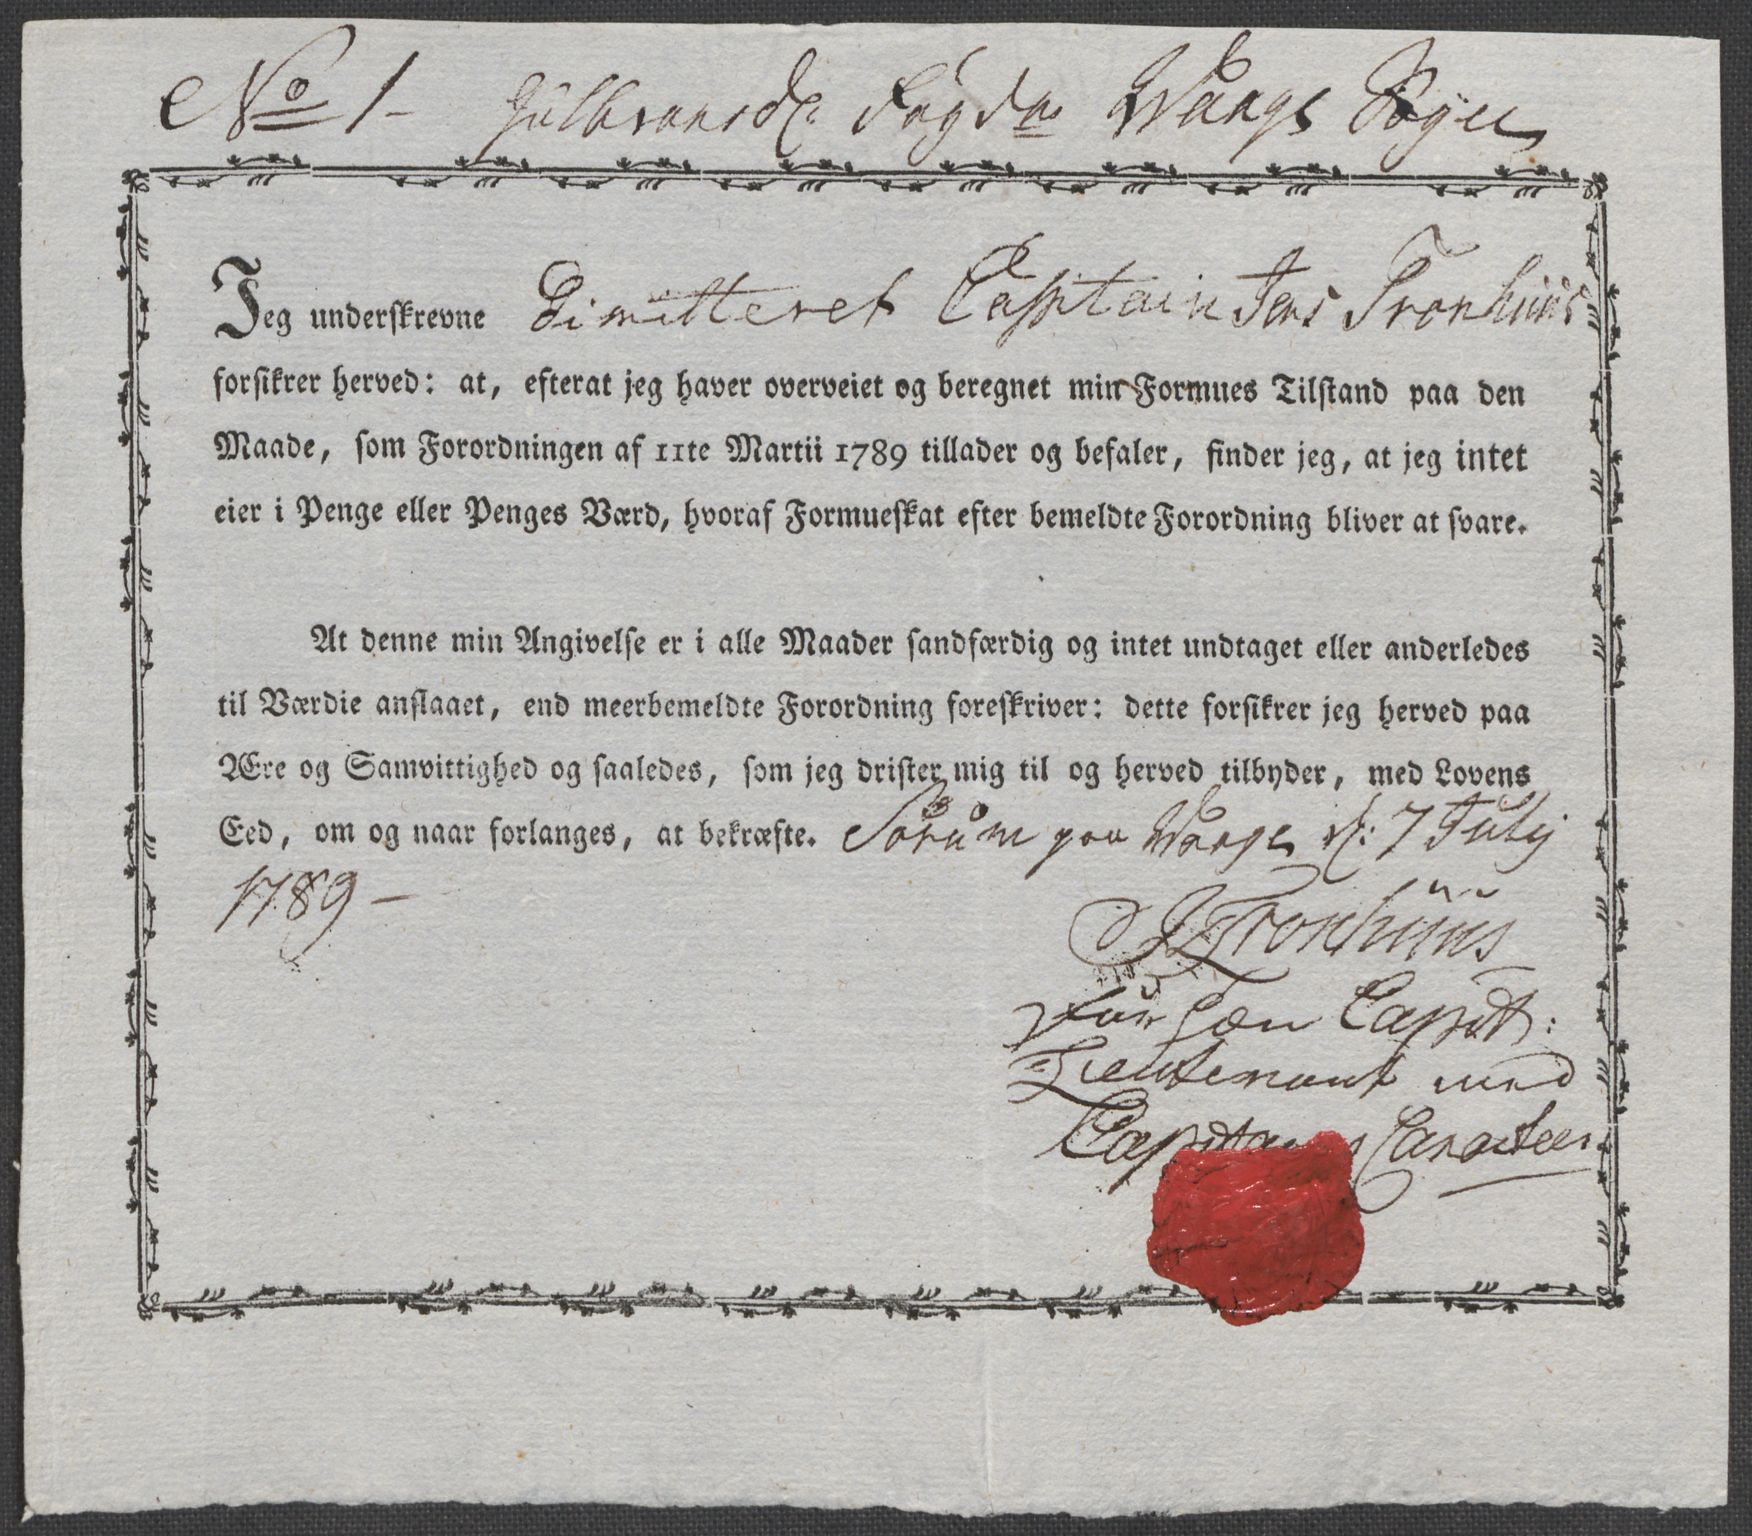 No 1 - Gulbransd: Fogdrie Waage Sogn
Jeg underskrevne Dimitteret Capitain Jens Tronhuus
forsikrer herved: at, efterat jeg haver overveiet og beregnet min Formues Tilstand paa den
Maade, som Forordningen af 11te Martii 1789 tillader og befaler, finder jeg, at jeg intet
eier i Penge eller Penges Værd, hvoraf Formueskat efter bemeldte Forordning bliver at svare.
At denne min Angivelse er i alle Maader sandfærdig og intet undtaget eller anderledes
til Værdie anslaaet, end meerbemeldte Forordning foreskriver: dette forsikrer jeg herved paa
Ære og Samvittighed og saaledes, som jeg drister mig til og herved tilbyder, med Lovens
Eed, om og naar forlanges, at bekræfte. Sørum paa Waage d: 7 July
1789 -
J Tronhuus
Capit:
Lieutenant med
Capitains Caracteer